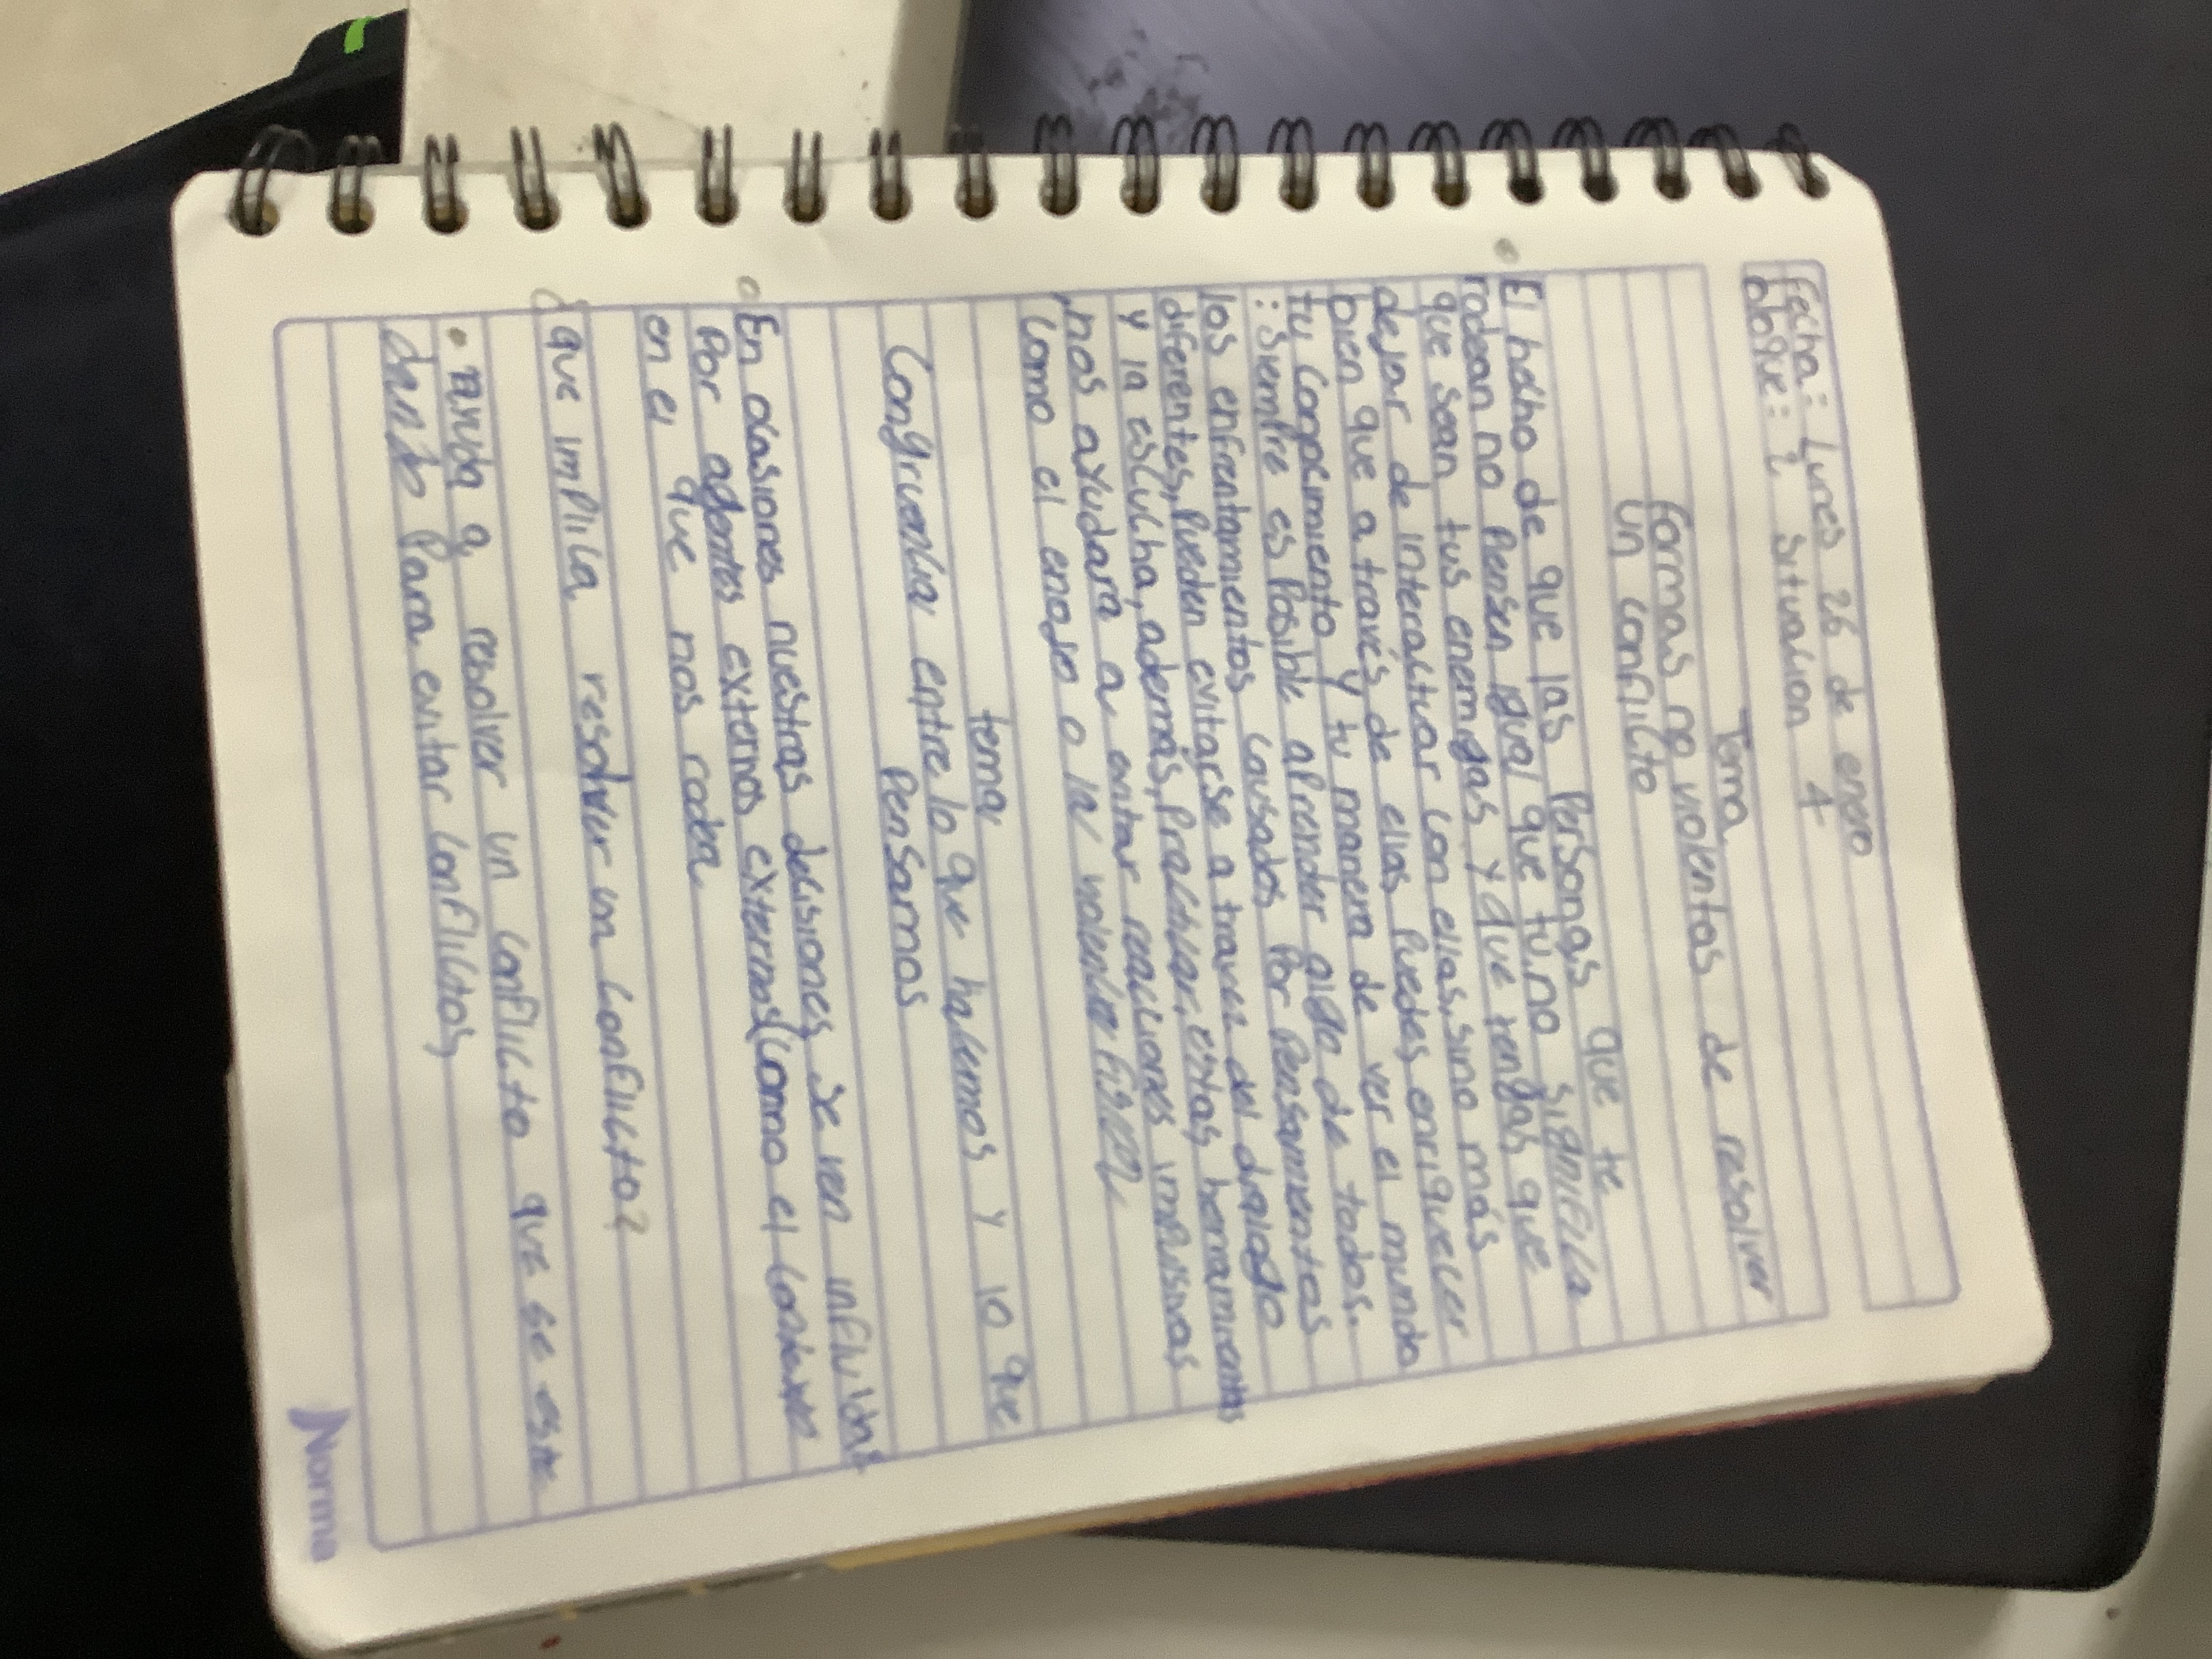 Fecha: Lunes 26 de enero
bloque: 2 Situacion 4
Tema
formas no violentas de resolver
un conflicto
El hecho de que las Personas que te
rodean no Piensen igual que tu, no significa
que sean tus enemigas y que tengas que
dejar de interactuar con ellas, sino más
bien que a través de ellas Puedes enriquecer
tu Conocimiento y tu manera de ver el mundo
: Siempre es Posible aprender algo de todos.
los enfrentamientos causados Por Pensamientos
diferentes, Pueden evitarse a traves del dialogo
y la escucha, además, Practicar, estas herramientas
nos ayudara a evitar reacciones impulsivas
Como el enojo o la violencia
tema
Congruencia entre lo que hacemos y lo que
Pensamos
En ocasiones nuestras decisiones se ven influidas
Por agentes externos externos (como el contexto
en el que nos rodea
que implica resolver un conflicto?
• Ayuda a resolver un conflicto que se esta
dando Para evitar conflictos
Norma